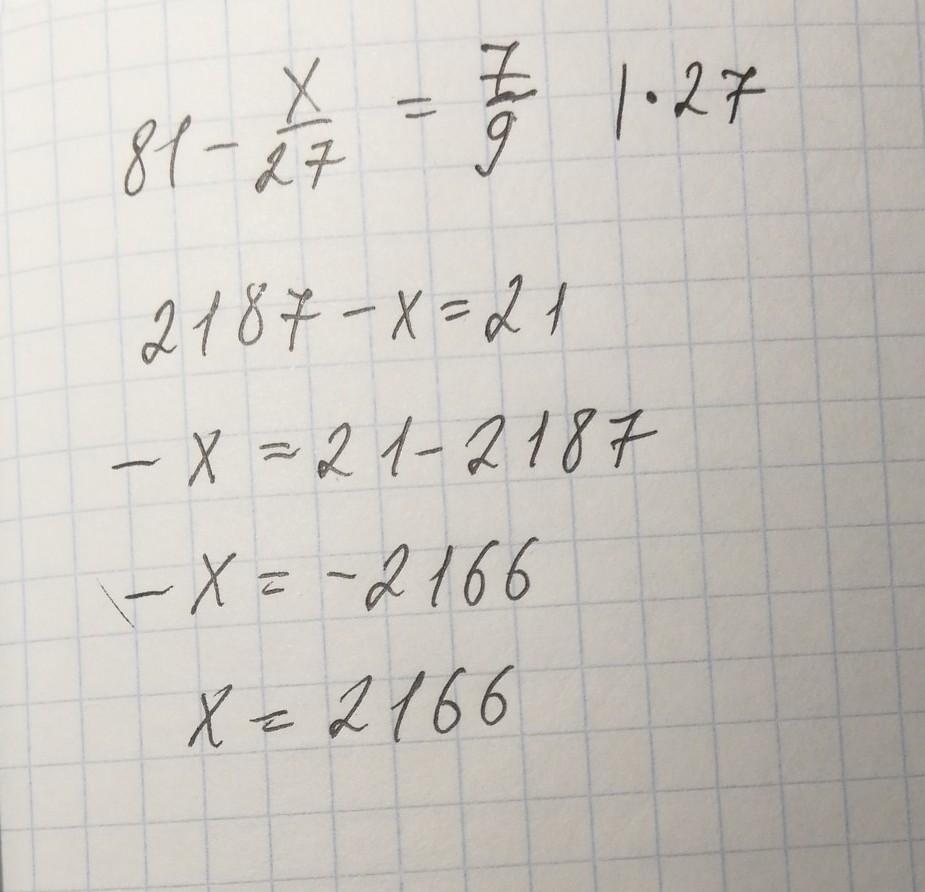 81 - x/27 = 7/9 | · 27
2187 - x = 21
- x = 21 - 2187
- x = - 2166
x = 2166